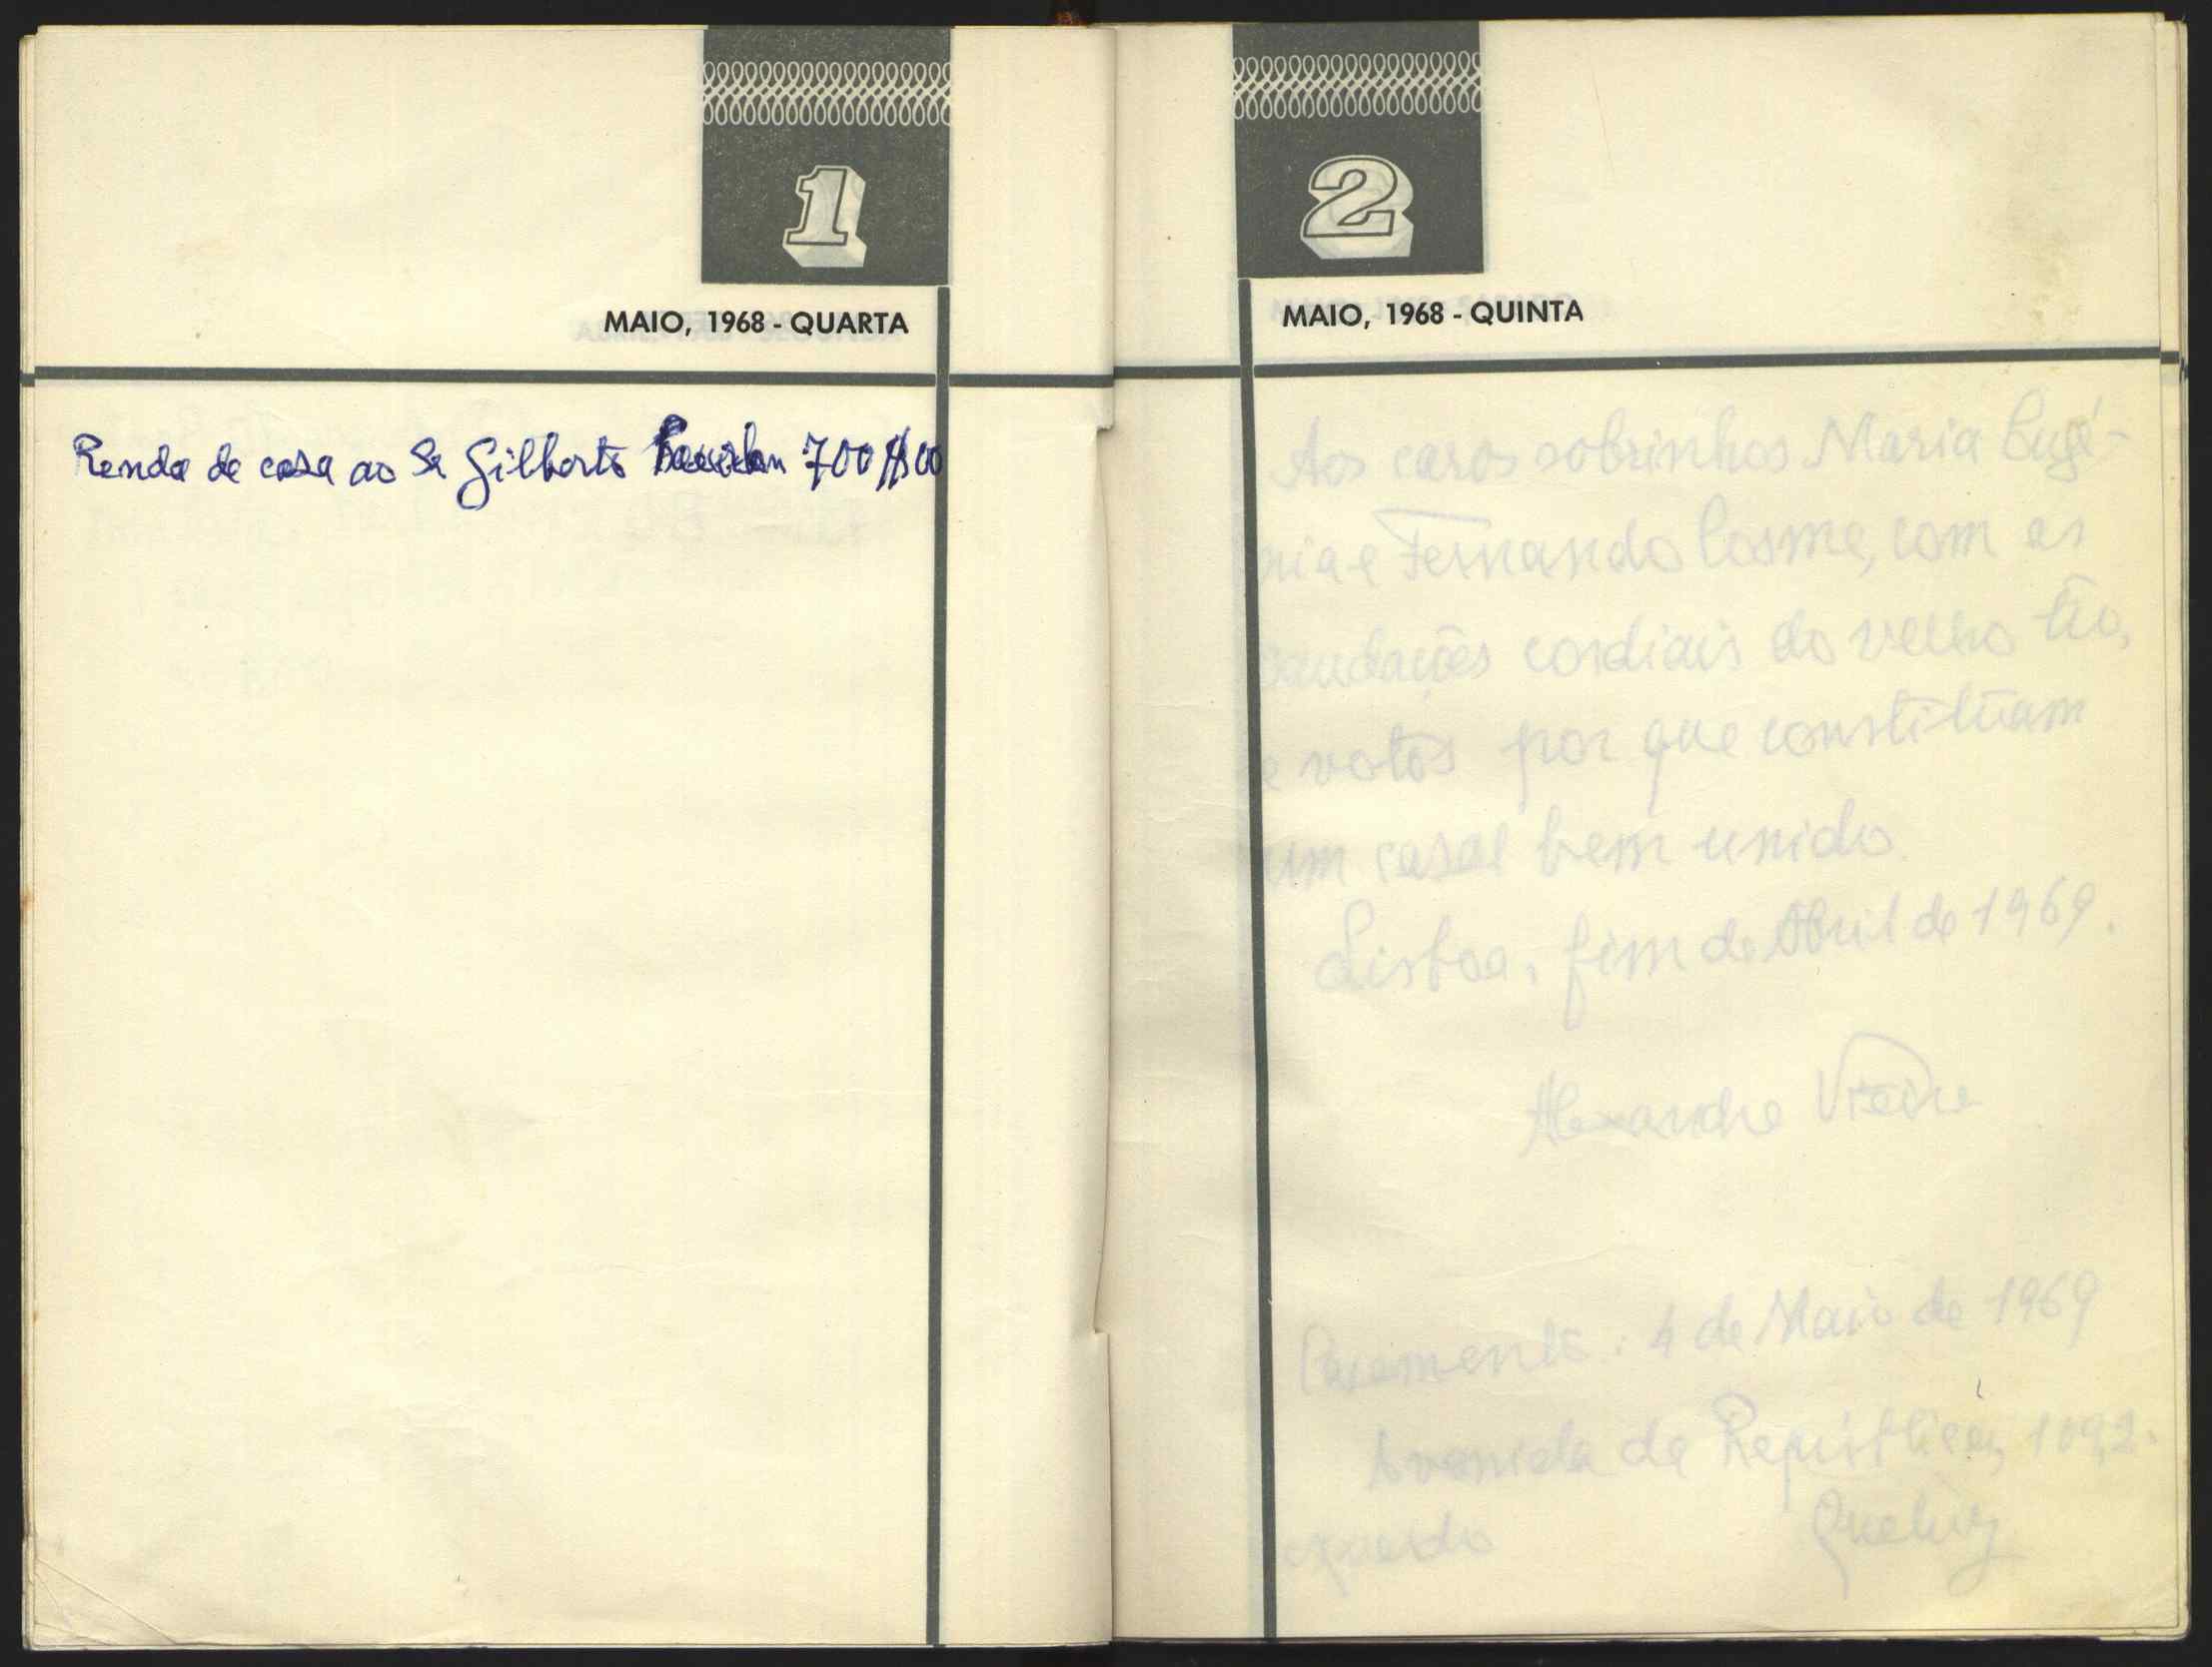 1
MAIO, 1968 - QUARTA
Renda de casa ao Sr Gilberto 700$00
2
MAIO, 1968 - QUINTA
Aos caros sobrinhos Maria Eugé-
nia e Fernando Cosme, com as
saudações cordiais do velho tio,
e votos por que constituam
um casal bem unido.
Lisboa, fim de Abril de 1969.
Alexandre Vieira
Casamento: 4 de Maio de 1969
Avenida da República, 109, 2.
esquerdo Queluz